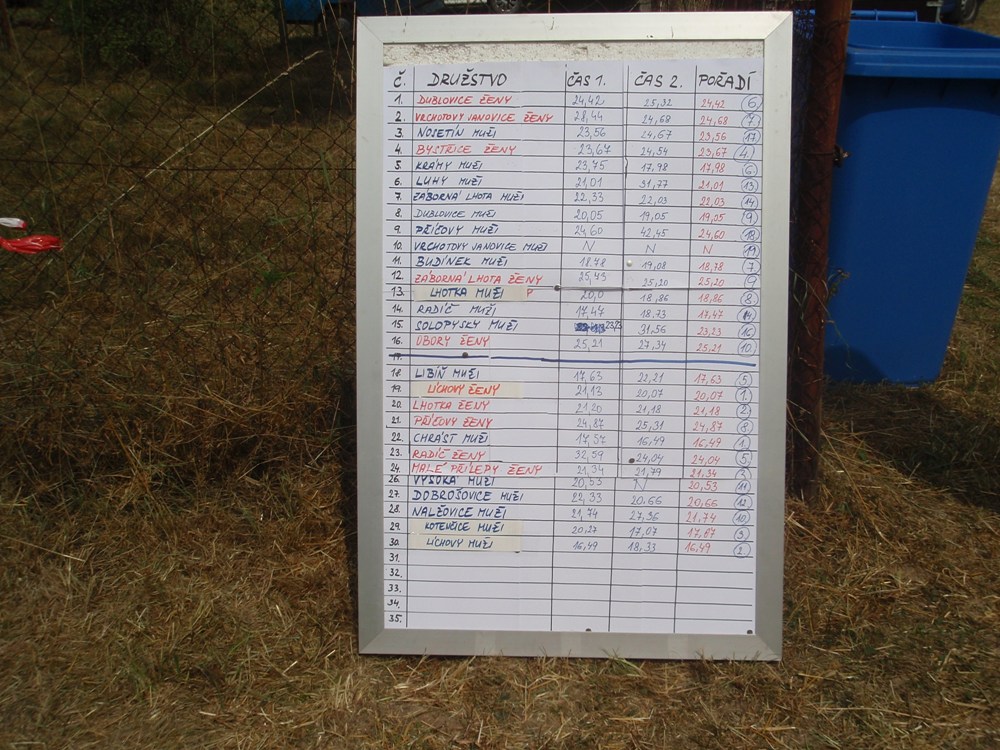 Č. DRUŽSTVO ČAS 1. ČAS 2. POŘADÍ
1. DUBLOVICE ŽENY 24,42 25,32 24,42 6
2. VRCHOTOVY JANOVICE ŽENY 28,44 24,68 24,68 7
3. NOSETÍN MUŽI 23,56 24,67 23,56 17
4. BYSTŘICE ŽENY 23,67 24,54 23,67 4
5. KRÁMY MUŽI 23,75 17,98 17,98 6
6. LUHY MUŽI 21,01 31,77 21,01 13
7. ZÁBORNÁ LHOTA MUŽI 22,33 22,03 22,03 14
8. DUBLOVICE MUŽI 20,05 19,05 19,05 9
9. PŘÍČOVY MUŽI 24,60 42,45 24,60 18
10. VRCHOTOVY JANOVICE MUŽI N N N 19
11. BUDÍNEK MUŽI 18,78 19,08 18,78 7
12. ZÁBORNÁ LHOTA ŽENY 25,43 25,20 25,20 9
13. LHOTKA MUŽI 20,0 18,86 18,86 8
14. RADÍČ MUŽI 17,47 18,73 17,47
15. SOLOPYSKY MUŽI 23,23 31,56 23,23 16
16. ÚBORY ŽENY 25,21 27,34 25,21 10.
17.
18. LIBÍŇ MUŽI 17,63 22,21 17,63 5
19. LÍCHOVY ŽENY 21,13 20,07 20,07 1.
20. LHOTKA ŽENY 21,20 21,18 21,18 2.
21. PŘÍČOVY ŽENY 24,87 25,31 24,87 8
22. CHRÁST MUŽI 17,57 16,49 16,49 1.
23. RADÍČ ŽENY 32,59 24,04 24,04 5
24. MALÉ PŘÍLEPY ŽENY 21,34 21,79 21,34 3
26. VYSOKÁ MUŽI 20,53 N 20,53 11
27. DOBROŠOVICE MUŽI 22,33 20,66 20,66 12
28. NALŽOVICE MUŽI 21,74 27,96 21,74 10
29. KOTENČICE MUŽI 20,27 17,07 17,07 3
30. LÍCHOVY MUŽI 16,49 18,33 16,49 2.
31.
32.
33.
34.
35.